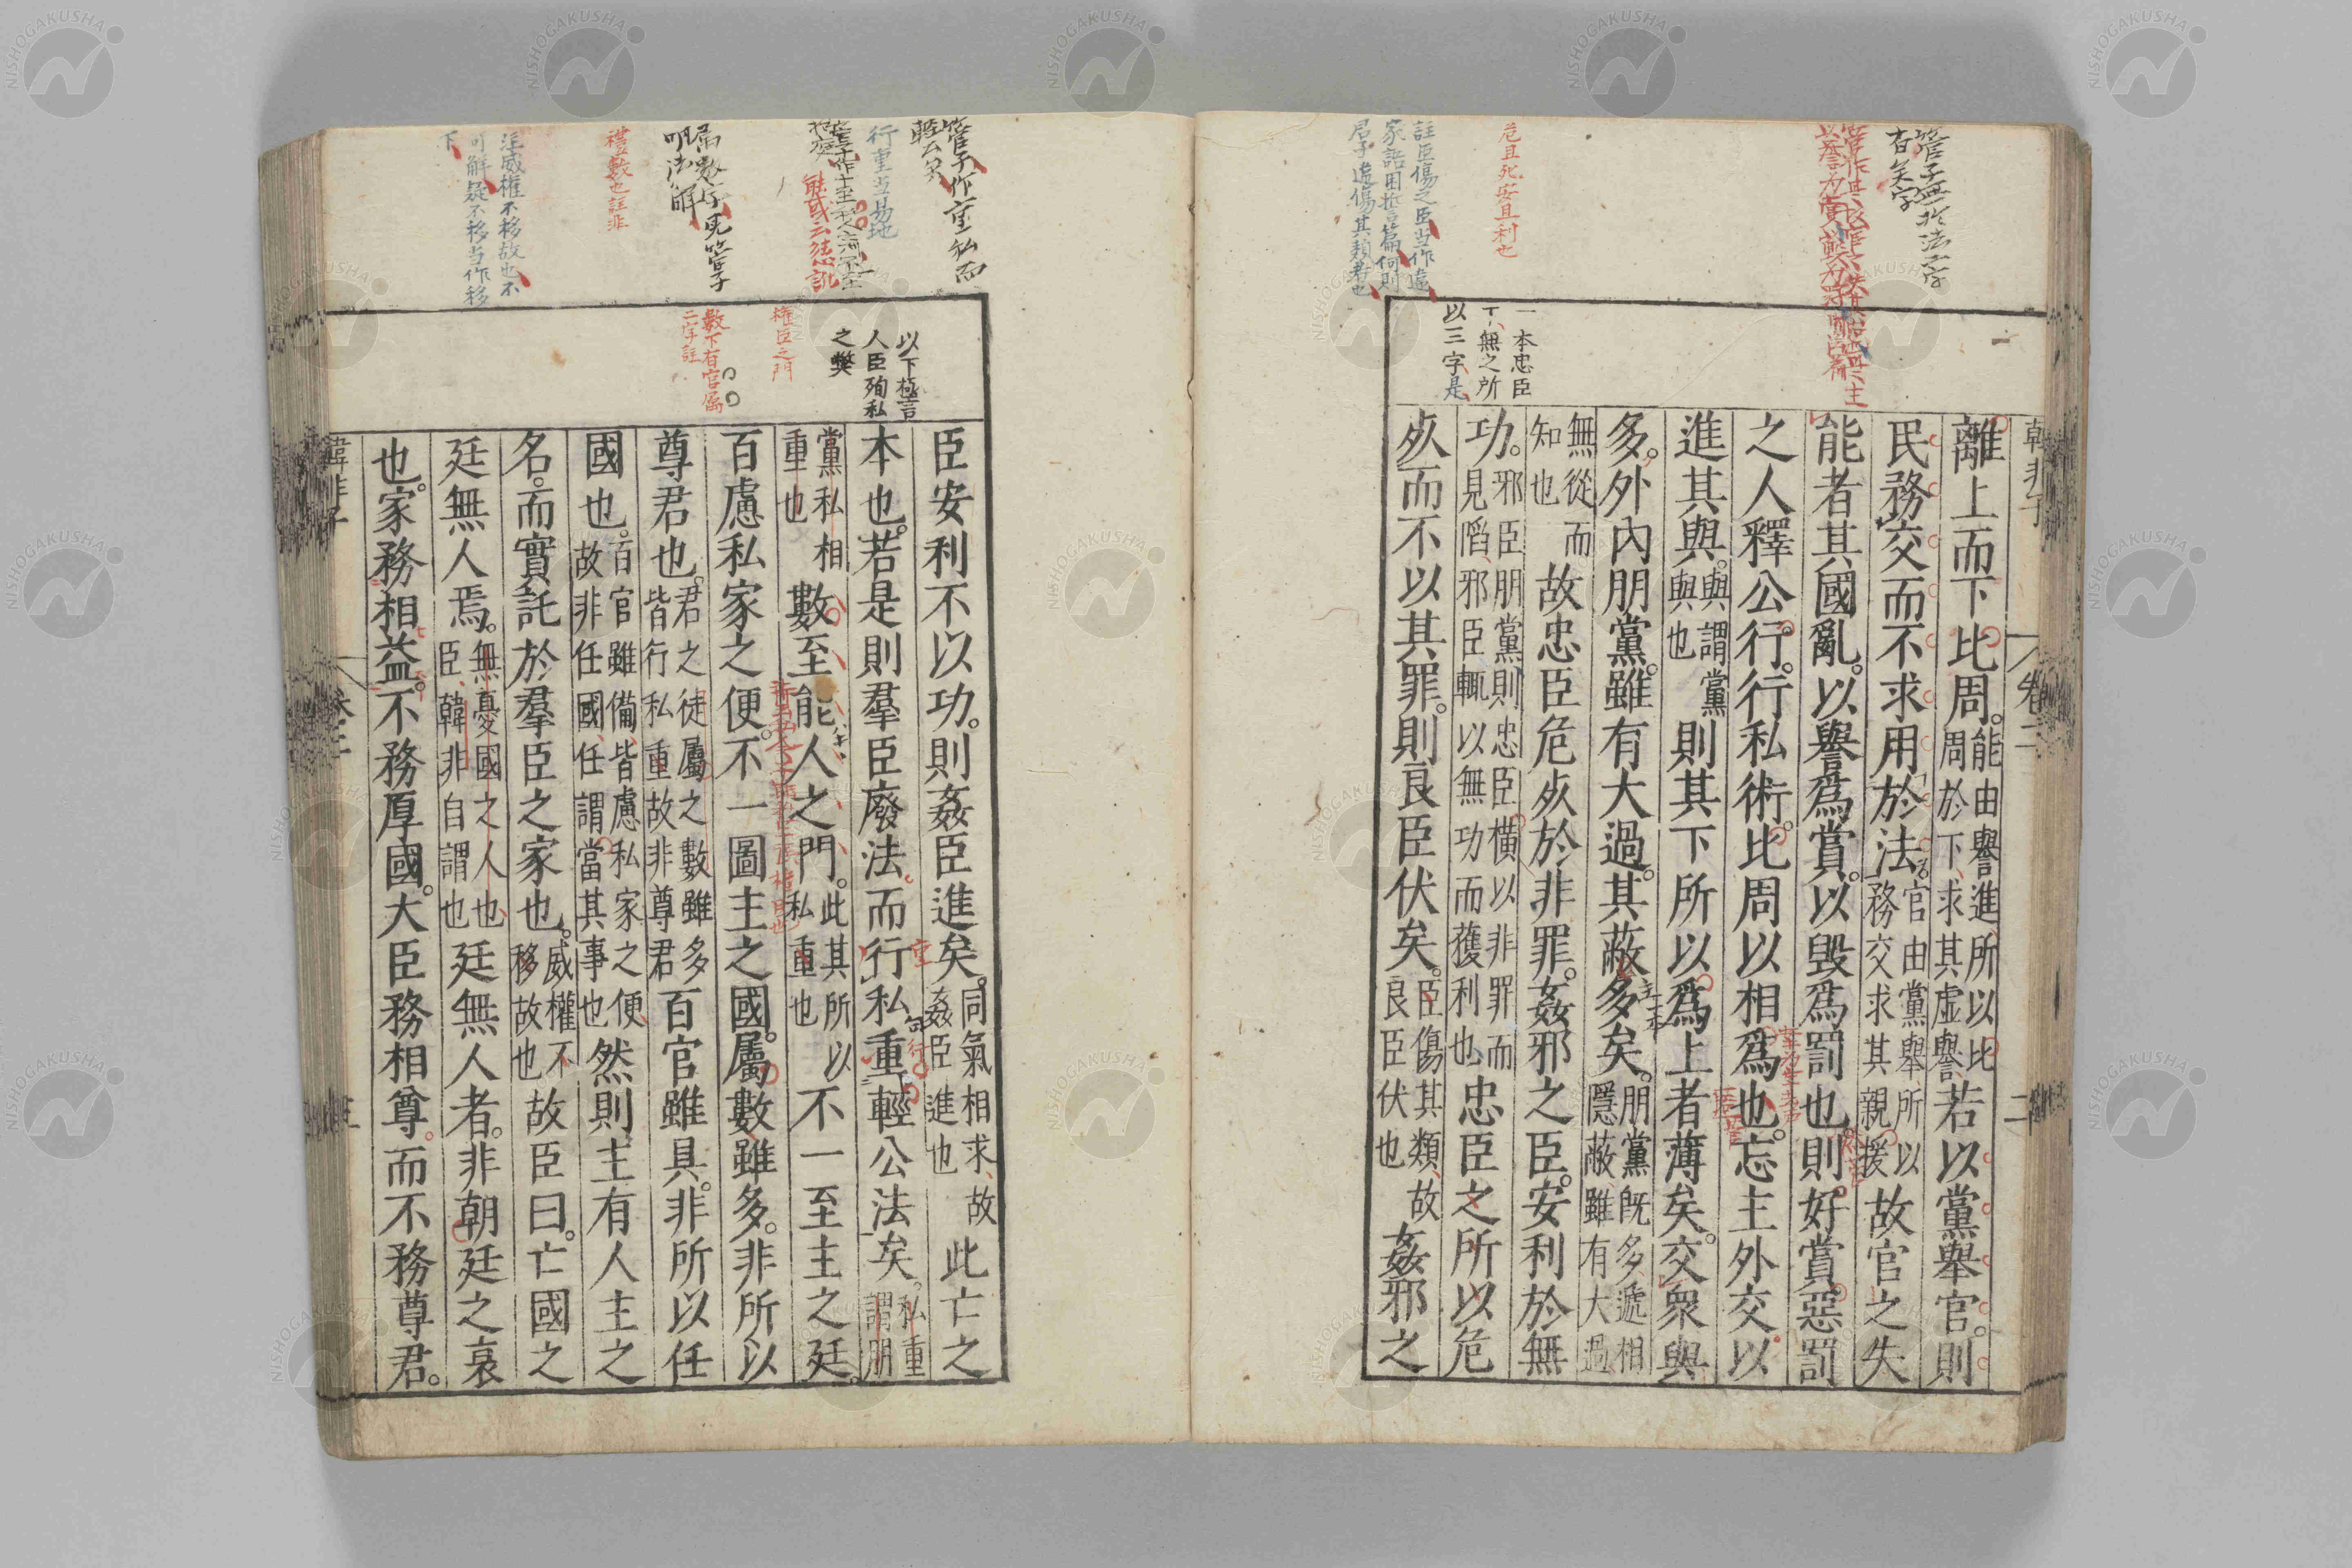 管子無於法字
有矣字
危且死安且利也
註臣傷之臣当作違
一本忠臣
下無之所
以三字是
韓非子
卷二
二
離上而下比周。能由譽進、所以比
周於下、求其虛譽、若以黨舉官。則
民務交而不求用於法。官由黨舉所以
務交求其親援故官之失
能者其國亂。以譽爲賞。以毀爲罰也則。好賞惡罰
之人釋公行。行私術。比周以相爲也。忘主外交以
進其與。與謂黨
與也則其下所以爲上者薄矣。交衆與
多。外內朋黨。雖有大過。其蔽多矣。朋黨既多、遞相
隱蔽、雖有大過
無從而
知也故忠臣危死於非罪。姦邪之臣。安利於無
功。邪臣朋黨則忠臣橫以非罪而
見陷、邪臣輒以無功而獲利也忠臣之所以危
死而不以其罪。則良臣伏矣。臣傷其類、故
良臣伏也姦邪之
管子作重私而
輕公矣
行重当易地
属數字見管子
明法解
禮數也註非
注威權不移故也不
可解疑不移当作移
下
以下極言
人臣殉私
之弊
權臣之門
數下有官屬
二字註
臣安利不以功。則姦臣進矣。同氣相求、故
姦臣進也此亡之
本也。若是則羣臣廢法。而行私重輕公法矣。私重
謂朋
黨私相
重也數至能人之門。此其所以
私重也不一至主之廷。
百慮私家之便。不一圖主之國。屬數雖多。非所以
尊君也。君之徒屬之數雖多
皆行私重故非尊君百官雖具。非所以任
國也。百官雖備、皆慮私家之便、
故非任國、任謂當其事也然則主有人主之
名。而實託於羣臣之家也。威權不
移故也故臣曰。亡國之
廷無人焉。無憂國之人也、
臣、韓非自謂也廷無人者。非朝廷之衰
也。家務相益。不務厚國。大臣務相尊。而不務尊君。
韓非子